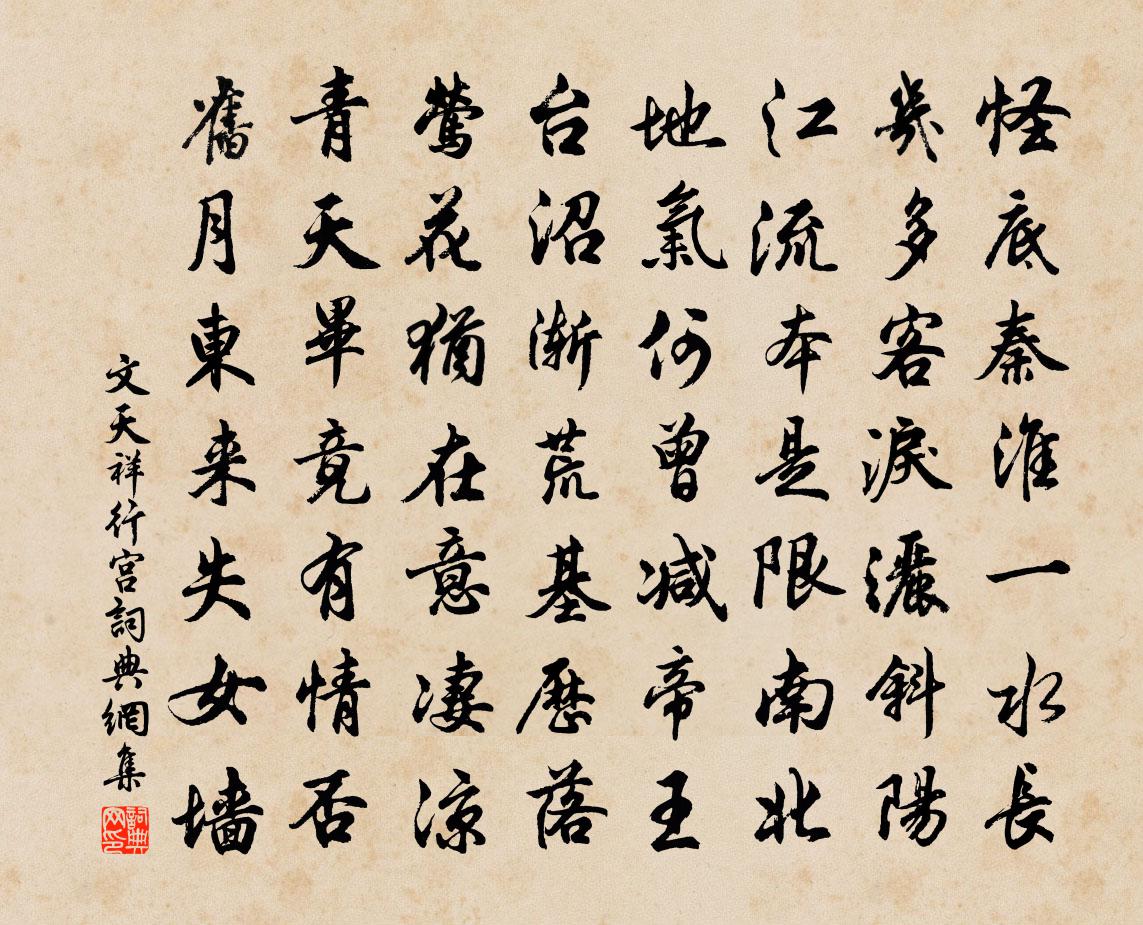 怪底秦淮一水長
幾多客淚灑斜陽
江流本是限南北
地氣何曾減帝王
台沼漸荒基歷落
鶯花猶在意淒涼
青天畢竟有情否
舊月東来失女墻
文天祥行宫詞典網集
詞典网印